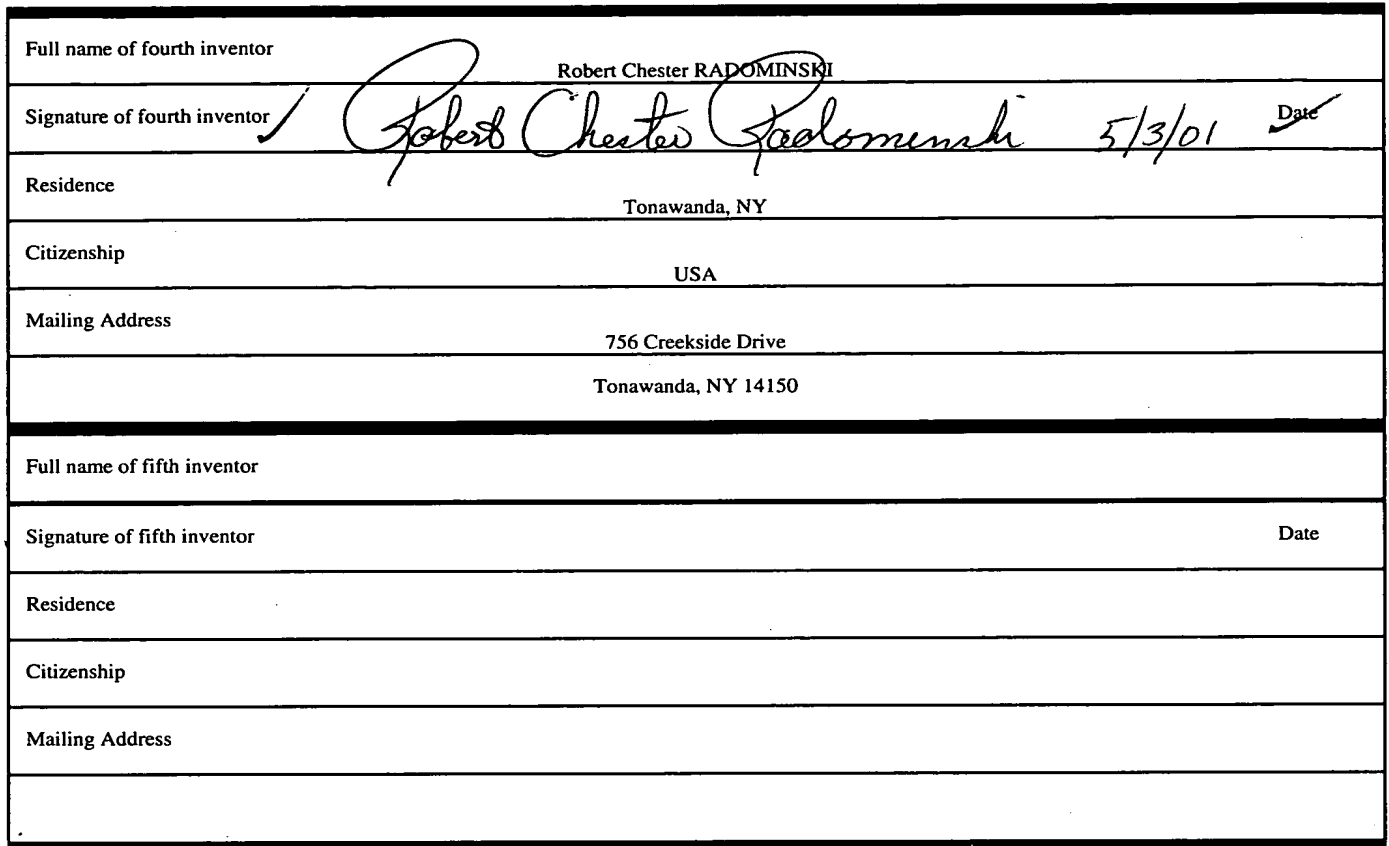 Full name of fourth inventor
Robert Chester RADOMINSKI
Signature of fourth inventor Robert Chester Radominski 5/3/01 Date
Residence
Tonawanda, NY
Citizenship
USA
Mailing Address
756 Creekside Drive
Tonawanda, NY 14150
Full name of fifth inventor
Signature of fifth inventor Date
Residence
Citizenship
Mailing Address